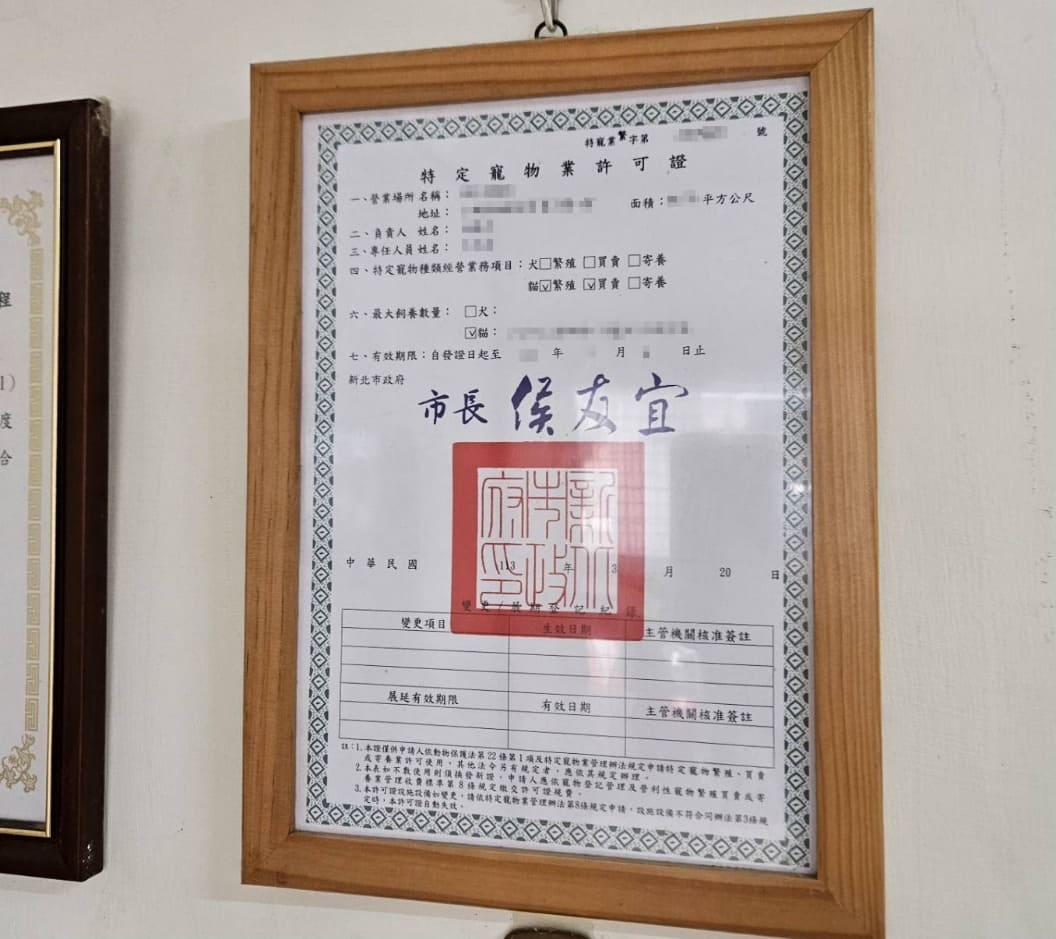 程
1)
度
合
特寵業繁字第 號
特定寵物業許可證
一、營業場所名稱：
地址： 面積： 平方公尺
二、負責人 姓名：
三、專任人員姓名：
四、特定寵物種類經營業務項目：犬□繁殖 □買賣 □寄養
貓☑繁殖 ☑買賣 □寄養
六、最大飼養數量： □犬：
☑貓：
七、有效期限：自發證日起至 年 月 日止
新北市政府
市長 侯友宜
新北市政府印
中華民國 113 年 3 月 20 日
變更/展期登記紀錄
變更項目 生效日期 主管機關核准簽註
展延有效期限 有效日期 主管機關核准簽註
註：1.本證僅供申請人依動物保護法第22條第1項及特定寵物業管理辦法規定申請特定寵物繁殖、買賣
或寄養業許可使用，其他法令另有規定者，應依其規定辦理。
2.本表如不敷使用則須換發新證，申請人應依寵物登記管理及營利性寵物繁殖買賣或寄
養業管理收費標準第8條規定繳交許可證規費。
3.本許可證設施設備如變更，請依特定寵物業管理辦法第8條規定申請，設施設備不符合同辦法第3條規
定時，本許可證自動失效。